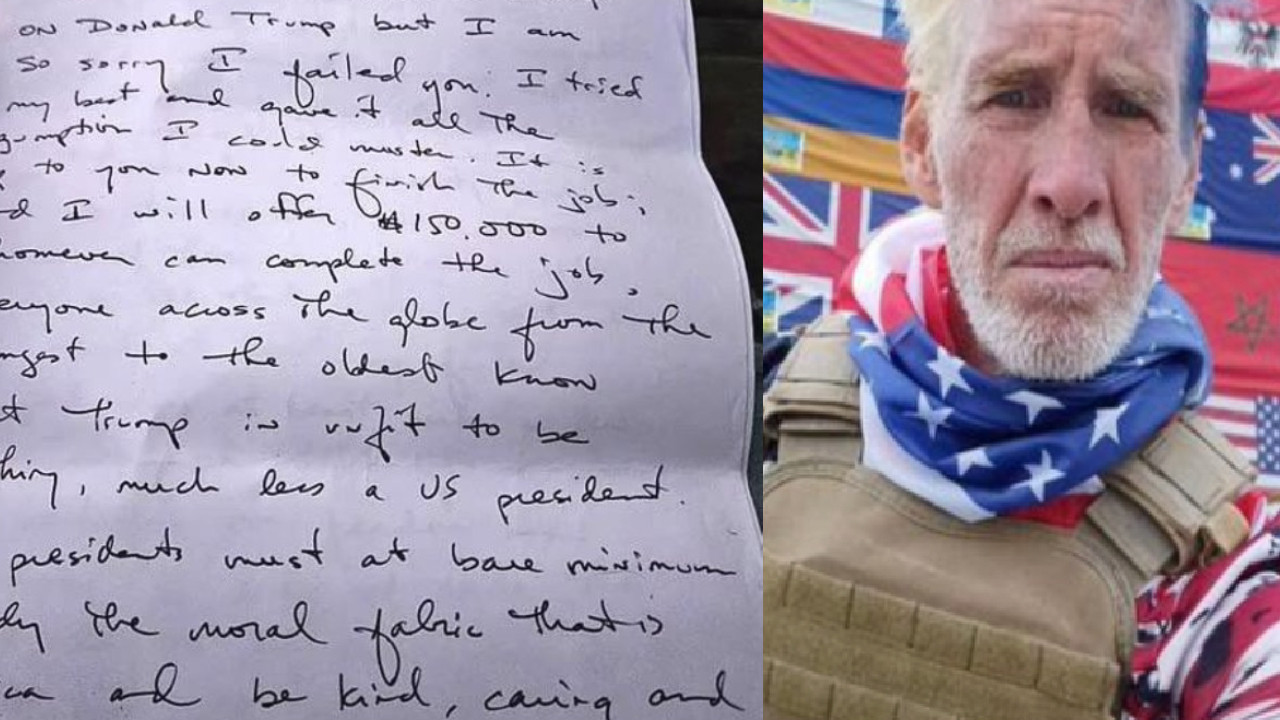 on Donald Trump but I am
so sorry I failed you. I tried
my best and gave it all the
gumption I could muster. It is
to you now to finish the job;
d I will offer $150,000 to
homever can complete the job.
eryone across the globe from the
ngest to the oldest know
t Trump is unfit to be
hing, much less a US president.
presidents must at bare minimum
dy the moral fabric that is
ica and be kind, caring and